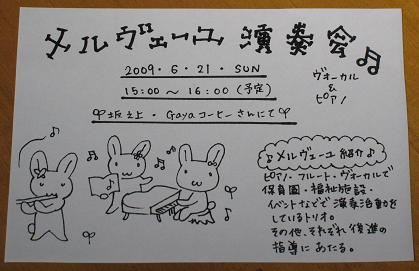 メルヴェーユ 演奏会♫
ヴォーカル
&
ピアノ
2009・6・21・SUN
15:00 〜 16:00 (予定)
坂之上・Gayaコーヒーさんにて
♪メルヴェーユ紹介♪
ピアノ・フルート・ヴォーカルで
保育園・福祉施設・
イベントなどで演奏活動を
しているトリオ。
その他、それぞれ後進の
指導にあたる。